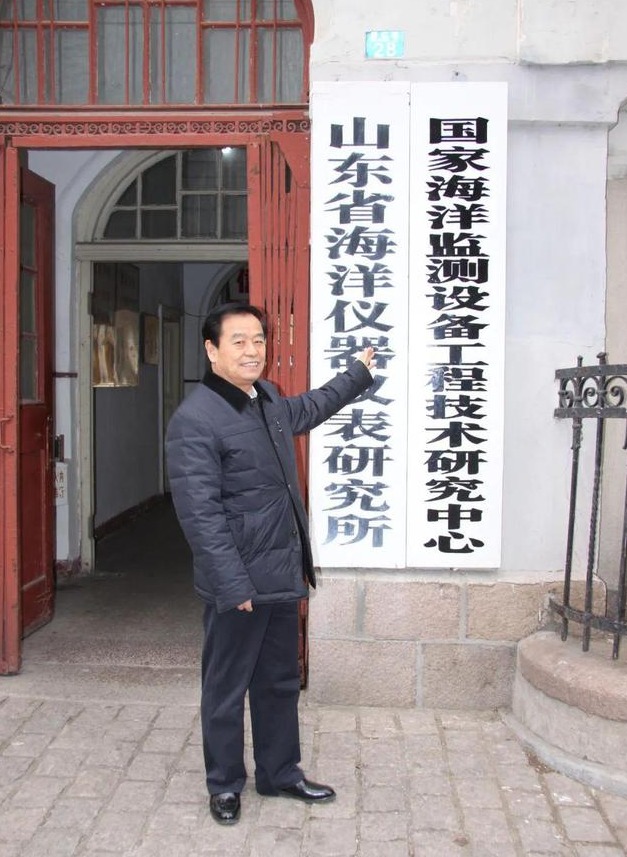 28
国家海洋监测设备工程技术研究中心
山东省海洋仪器仪表研究所